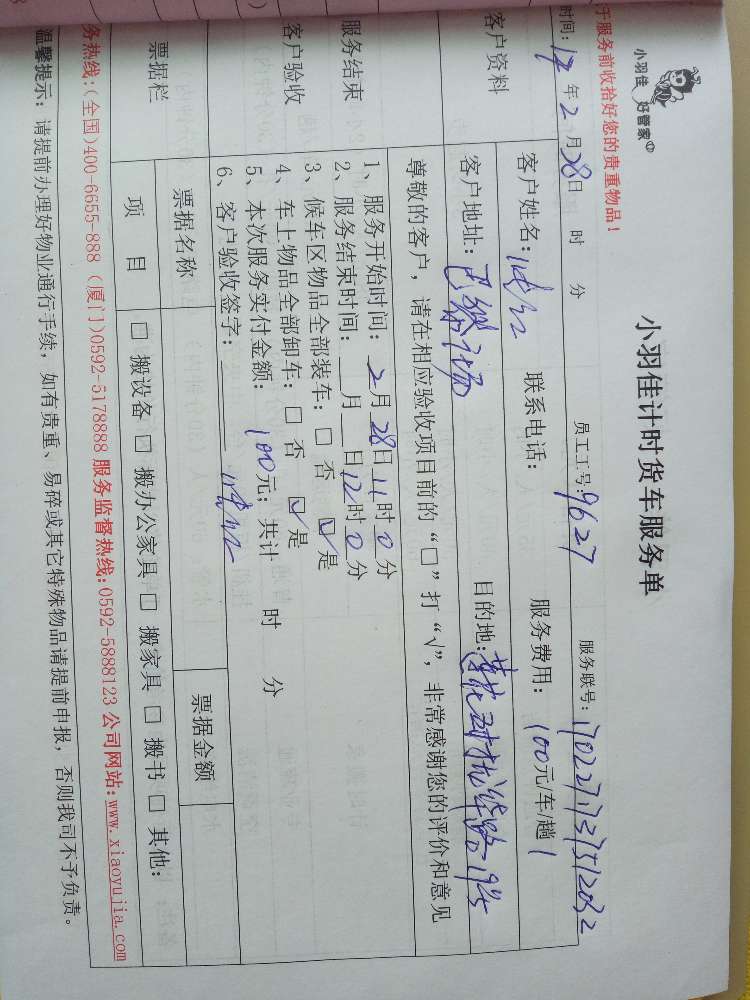 小羽佳 好管家
小羽佳计时货车服务单
于服务前收拾好您的贵重物品!
时间: 17年2月28日 时 分 员工工号: 9627 服务联号:
客户资料
客户姓名: 联系电话: 服务费用: 100元/车/趟
客户地址: 目的地:
尊敬的客户,请在相应验收项目前的“□”打“√”,非常感谢您的评价和意见
服务结束
客户验收
1、服务开始时间: 2月28日11时0分
2、服务结束时间: 月 日12时0分
3、候车区物品全部装车: □ 否 ☑ 是
4、车上物品全部卸车: □ 否 ☑ 是
5、本次服务实付金额: 100元; 共计 时 分
6、客户验收签字:
票据栏
票据名称 票据金额
项 目 □ 搬设备 □ 搬办公家具 □ 搬家具 □ 搬书 □ 其他:
务热线:(全国)400-6655-888 (厦门)0592-5178888 服务监督热线:0592-5888123 公司网站:www.xiaoyujia.com
温馨提示: 请提前办理好物业通行手续,如有贵重、易碎或其它特殊物品请提前申报,否则我司不予负责。